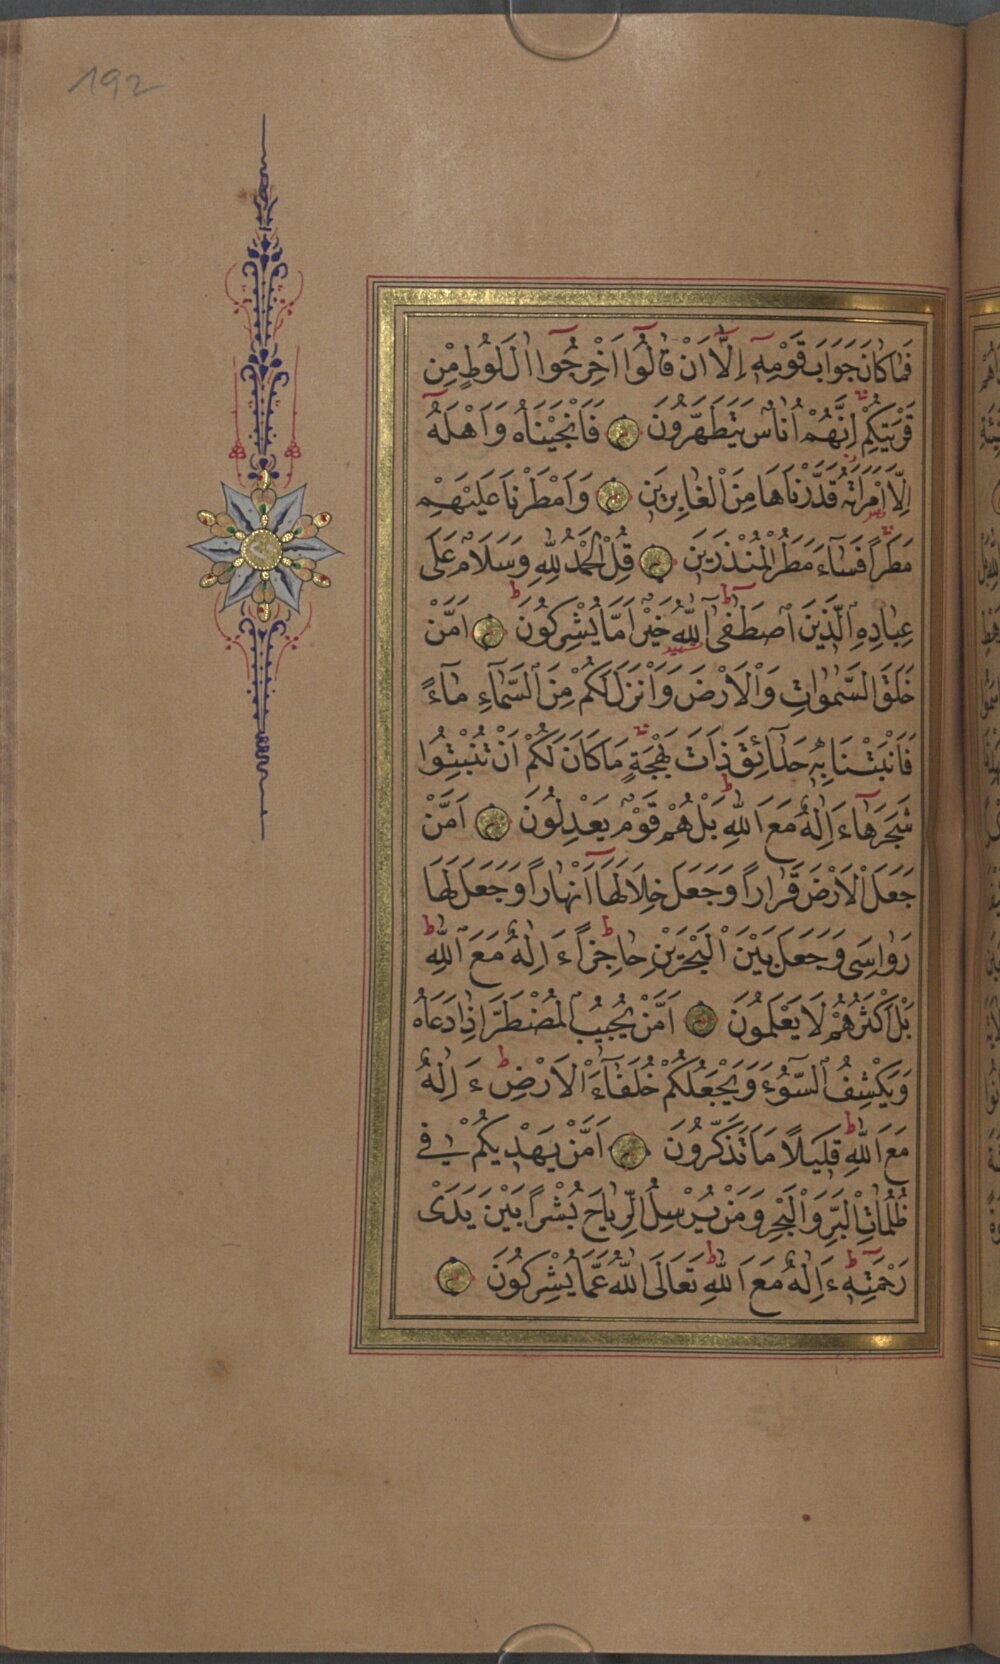 192
فَمَا كَانَ جَوَابَ قَوْمِهِ اِلَّا اَنْ قَالُوا اَخْرِجُوا اٰلَ لُوطٍ مِنْ
قَرْيَتِكُمْ اِنَّهُمْ اُنَاسٌ يَتَطَهَّرُونَ فَاَنْجَيْنَاهُ وَاَهْلَهُ
اِلَّا امْرَاَتَهُ قَدَّرْنَاهَا مِنَ الْغَابِرِينَ وَاَمْطَرْنَا عَلَيْهِمْ
مَطَرًا فَسَاءَ مَطَرُ الْمُنْذَرِينَ قُلِ الْحَمْدُ لِلّٰهِ وَسَلَامٌ عَلٰى
عِبَادِهِ الَّذِينَ اصْطَفٰى اٰللّٰهُ خَيْرٌ اَمَّا يُشْرِكُونَ اَمَّنْ
خَلَقَ السَّمٰوَاتِ وَالْاَرْضَ وَاَنْزَلَ لَكُمْ مِنَ السَّمَاءِ مَاءً
فَاَنْبَتْنَا بِهِ حَدَائِقَ ذَاتَ بَهْجَةٍ مَا كَانَ لَكُمْ اَنْ تُنْبِتُوا
شَجَرَهَا ءَاِلٰهٌ مَعَ اللّٰهِ بَلْ هُمْ قَوْمٌ يَعْدِلُونَ اَمَّنْ
جَعَلَ الْاَرْضَ قَرَارًا وَجَعَلَ خِلَالَهَا اَنْهَارًا وَجَعَلَ لَهَا
رَوَاسِيَ وَجَعَلَ بَيْنَ الْبَحْرَيْنِ حَاجِزًا ءَاِلٰهٌ مَعَ اللّٰهِ
بَلْ اَكْثَرُهُمْ لَا يَعْلَمُونَ اَمَّنْ يُجِيبُ الْمُضْطَرَّ اِذَا دَعَاهُ
وَيَكْشِفُ السُّوءَ وَيَجْعَلُكُمْ خُلَفَاءَ الْاَرْضِ ءَاِلٰهٌ
مَعَ اللّٰهِ قَلِيلًا مَا تَذَكَّرُونَ اَمَّنْ يَهْدِيكُمْ فِي
ظُلُمَاتِ الْبَرِّ وَالْبَحْرِ وَمَنْ يُرْسِلُ الرِّيَاحَ بُشْرًا بَيْنَ يَدَيْ
رَحْمَتِهِ ءَاِلٰهٌ مَعَ اللّٰهِ تَعَالَى اللّٰهُ عَمَّا يُشْرِكُونَ